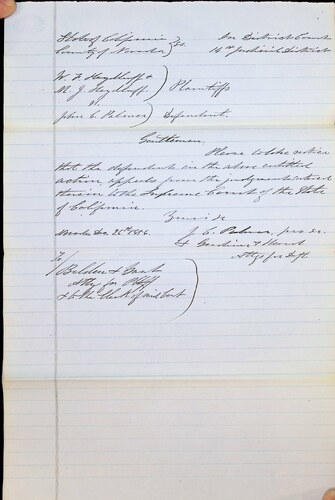 State of California } ss. In District Court
County of Nevada 14th Judicial District
W. F. Heydlauff &
M. J. Heydlauff } Plaintiffs
vs
John C. Palmer } Defendant.
Gentlemen
Please to take notice
that the defendant in the above entitled
action appeals from the judgment entered
therein to the Supreme Court of the State
of California.
Yours &c
Nevada Dec. 25th J. C. Palmer, pro se.
& Gardiner &
Attys for Deft
To
Belden &
Atty for Plff
& to the Clerk of said Court